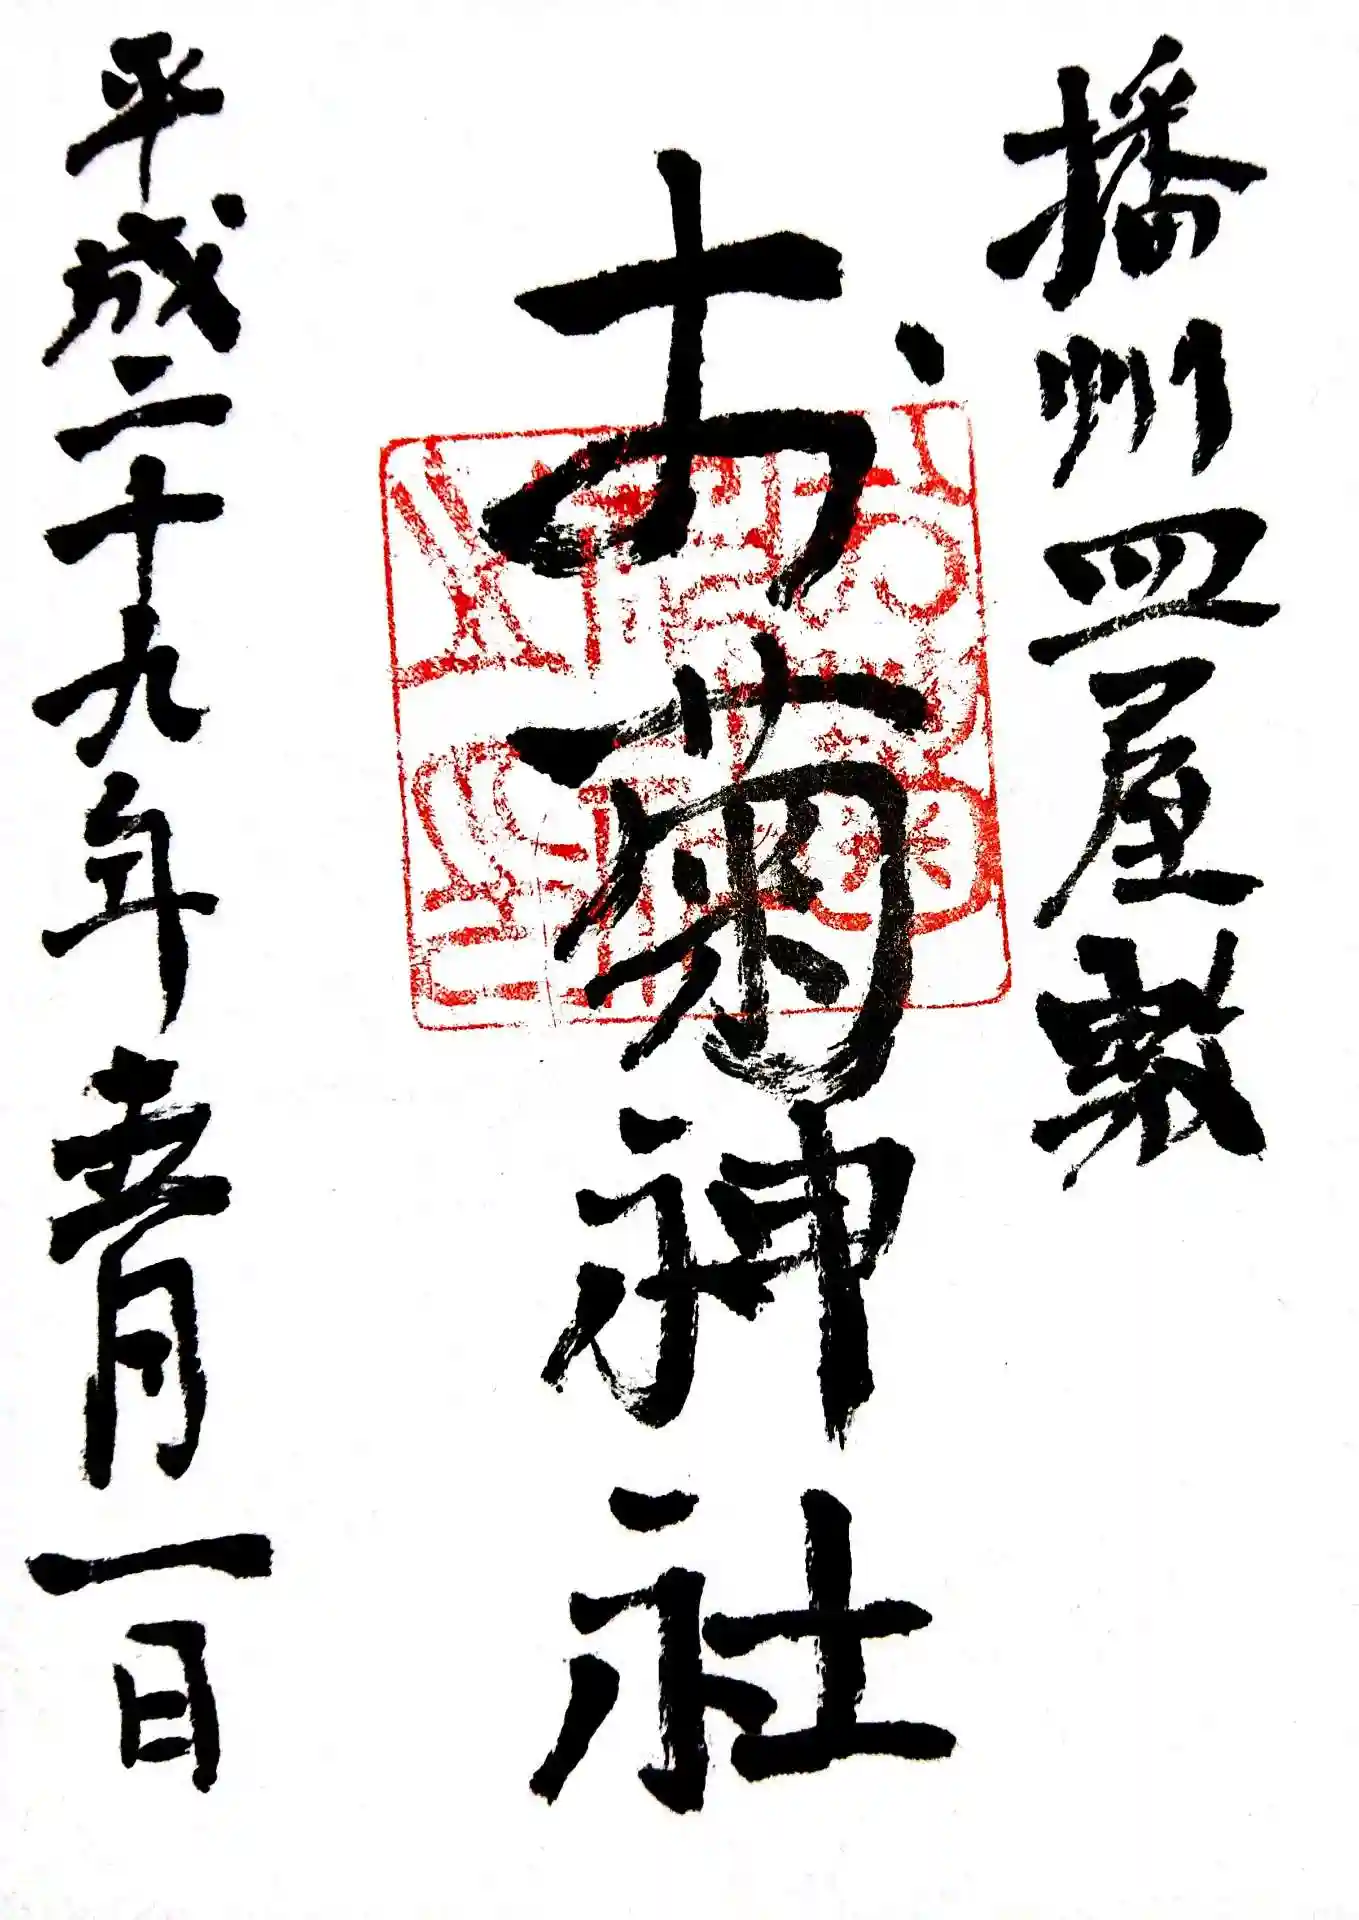 播州皿屋敷
お菊神社
平成二十九年壱月一日